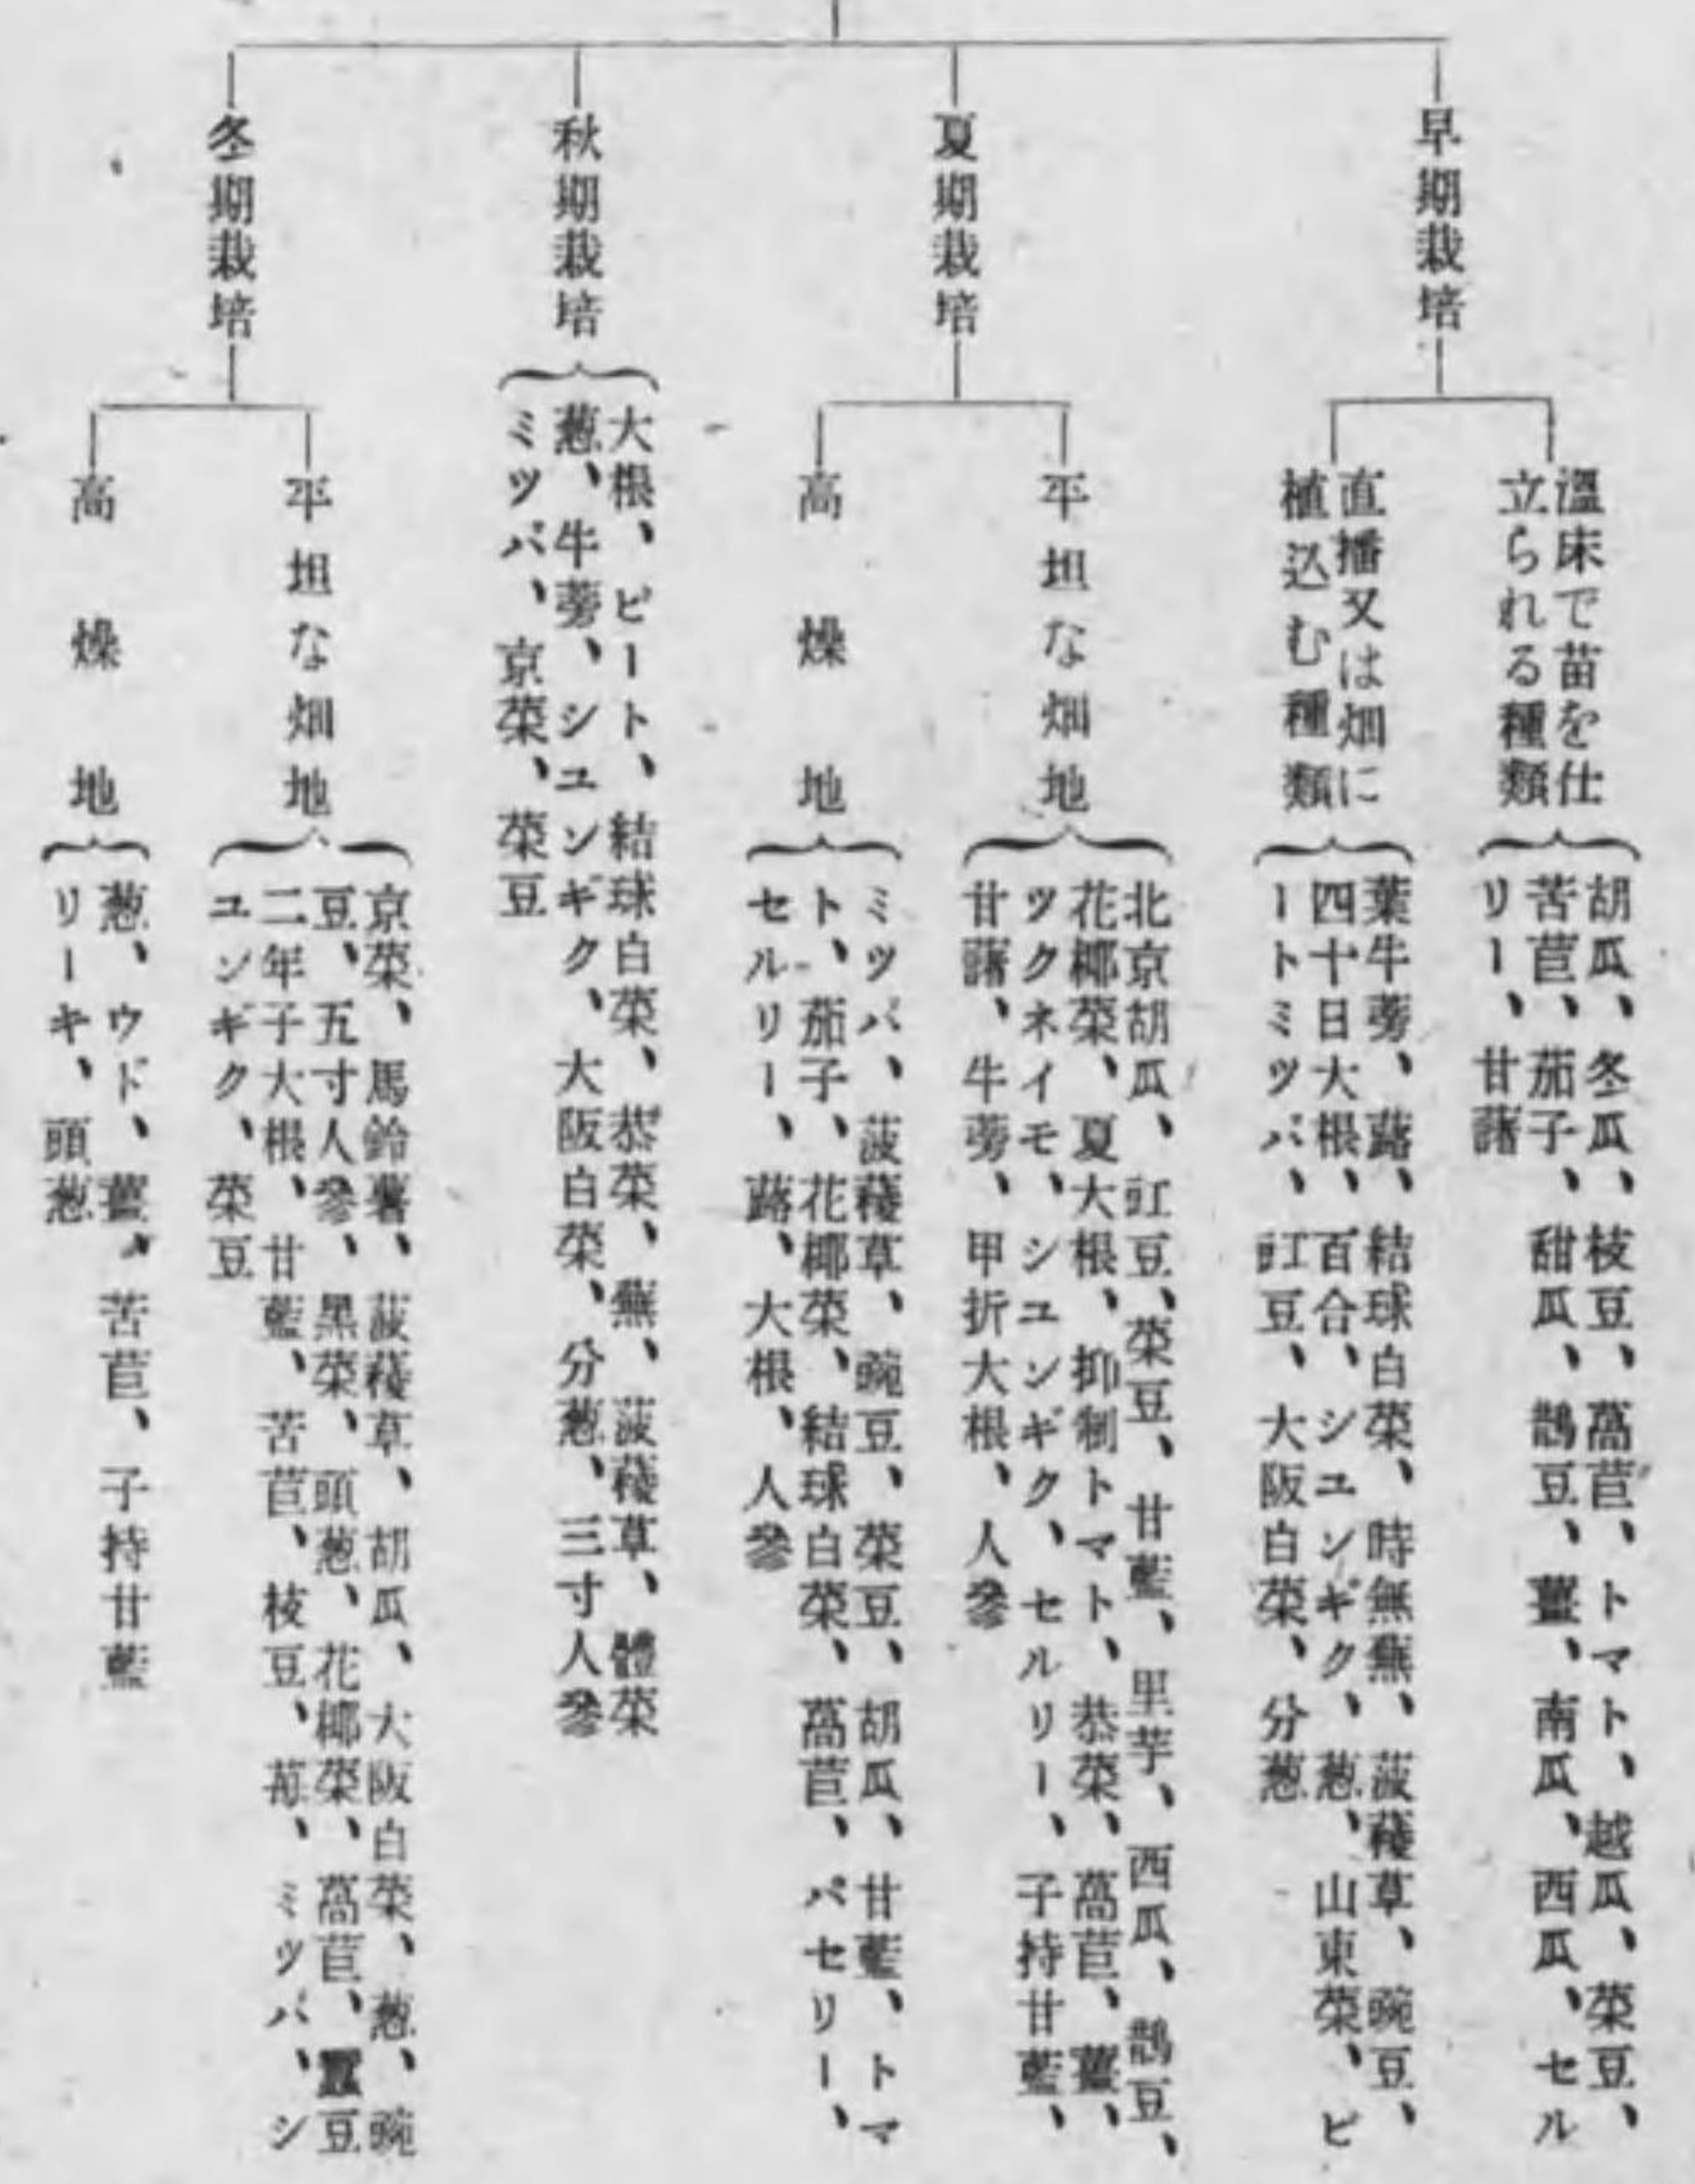 早期栽培
溫床で苗を仕
立られる種類
胡瓜、冬瓜、枝豆、萵苣、トマト、越瓜、菜豆、
苦苣、茄子、甜瓜、鵲豆、薑、南瓜、西瓜、セル
リー、甘藷
直播又は畑に
植込む種類
葉牛蒡、蕗、結球白菜、時無蕪、菠薐草、豌豆、
四十日大根、百合、シユンギク、葱、山東菜、ビ
ートミツバ、豇豆、大阪白菜、分葱
夏期栽培
平坦な畑地
北京胡瓜、豇豆、菜豆、甘藍、里芋、西瓜、鵲豆、
花椰菜、夏大根、抑制トマト、恭菜、萵苣、薑、
ツクネイモ、シユンギク、セルリー、子持甘藍、
甘藷、牛蒡、甲折大根、人參
高燥地
ミツバ、菠薐草、豌豆、菜豆、胡瓜、甘藍、トマ
ト、茄子、花椰菜、結球白菜、萵苣、パセリー、
セルリー、蕗、大根、人參
秋期栽培
大根、ビート、結球白菜、恭菜、蕪、菠薐草、體菜
葱、牛蒡、シユンギク、大阪白菜、分葱、三寸人參
ミツバ、京菜、菜豆
冬期栽培
平坦な畑地
京菜、馬鈴薯、菠薐草、胡瓜、大阪白菜、葱、豌
豆、五寸人參、黑菜、頭葱、花椰菜、萵苣、豆
二年子大根、甘藍、苦苣、枝豆、苺、ミツバ、シ
ユンギク、菜豆
高燥地
葱、ウド、薑、苦苣、子持甘藍
リーキ、頭葱